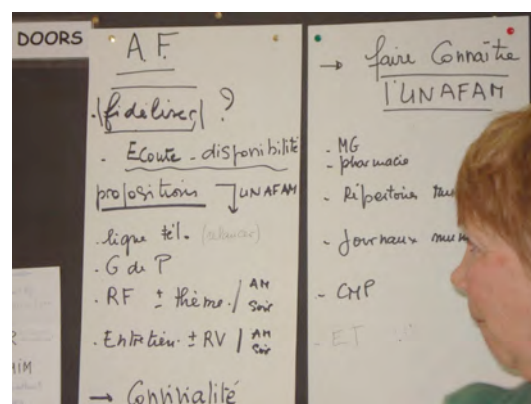 DOORS
A.F.
fidéliser ?
. Ecoute - disponibilité
propositions UNAFAM
. ligne tél.
. G de P
. RF ± thème / AM Soir
. Entretien ± RV / AM Soir
→ Convivialité
→ faire Connaître
l'UNAFAM
- MG
- pharmacie
- Répertoires
- Journaux
- CMP
- ET